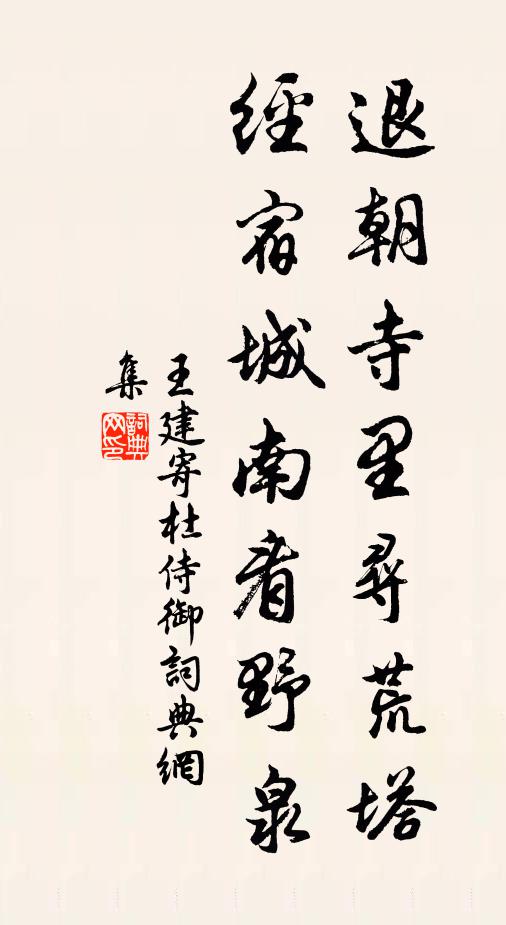 退朝寺里尋荒塔
經宿城南看野泉
王建寄杜侍御詞典網
集
詞典
网印